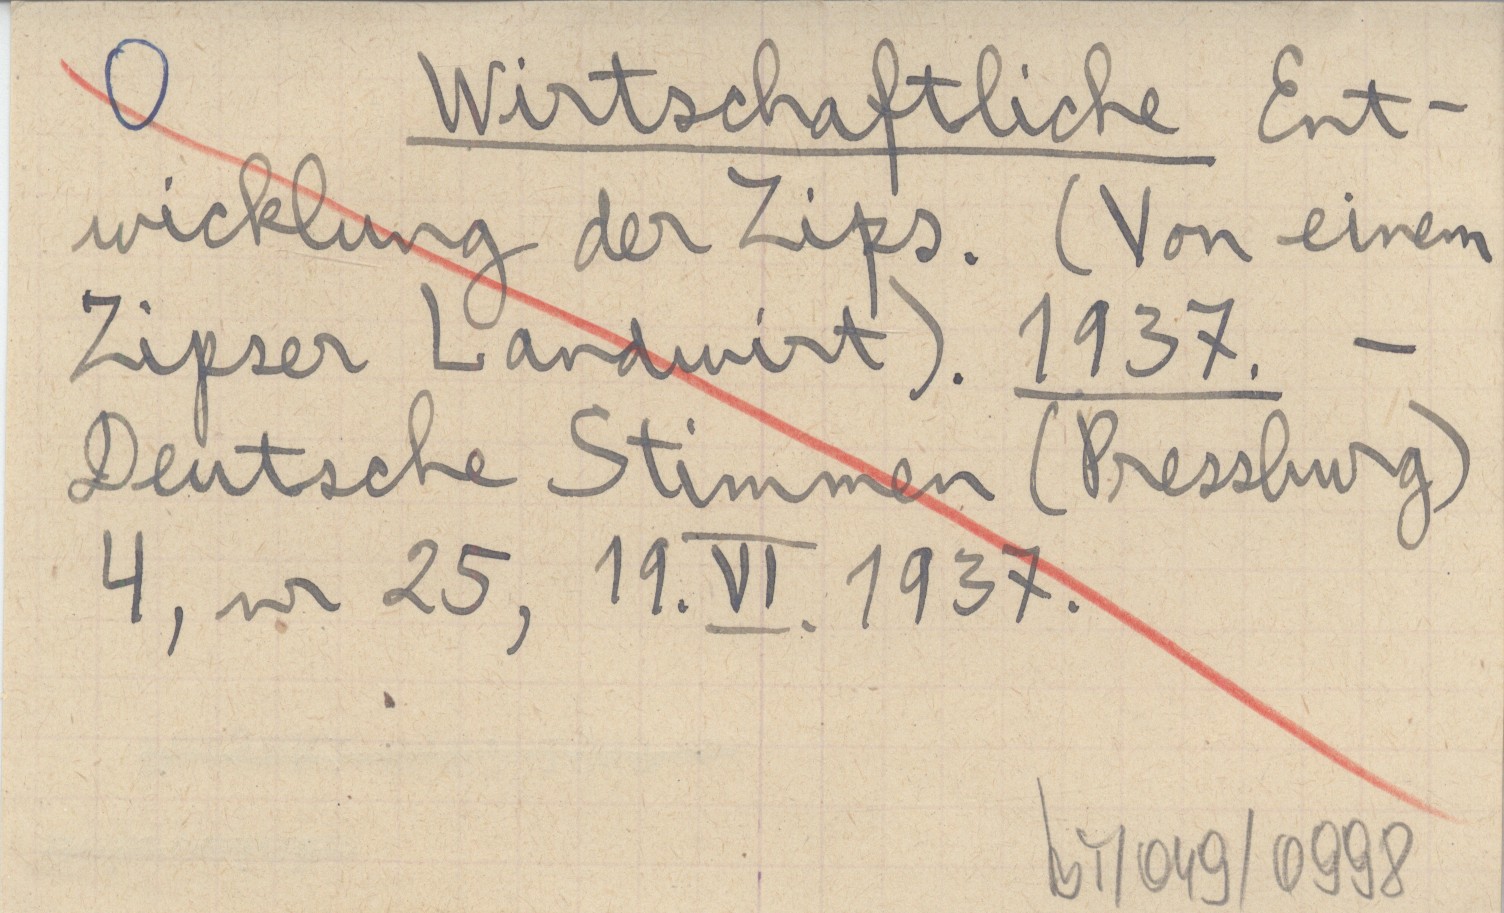 O Wirtschaftliche Ent-
wicklung der Zips. (Von einem
Zipser Landwirt). 1937. -
Deutsche Stimmen (Pressburg)
4, nr 25, 19. VI. 1937.
/049/0998